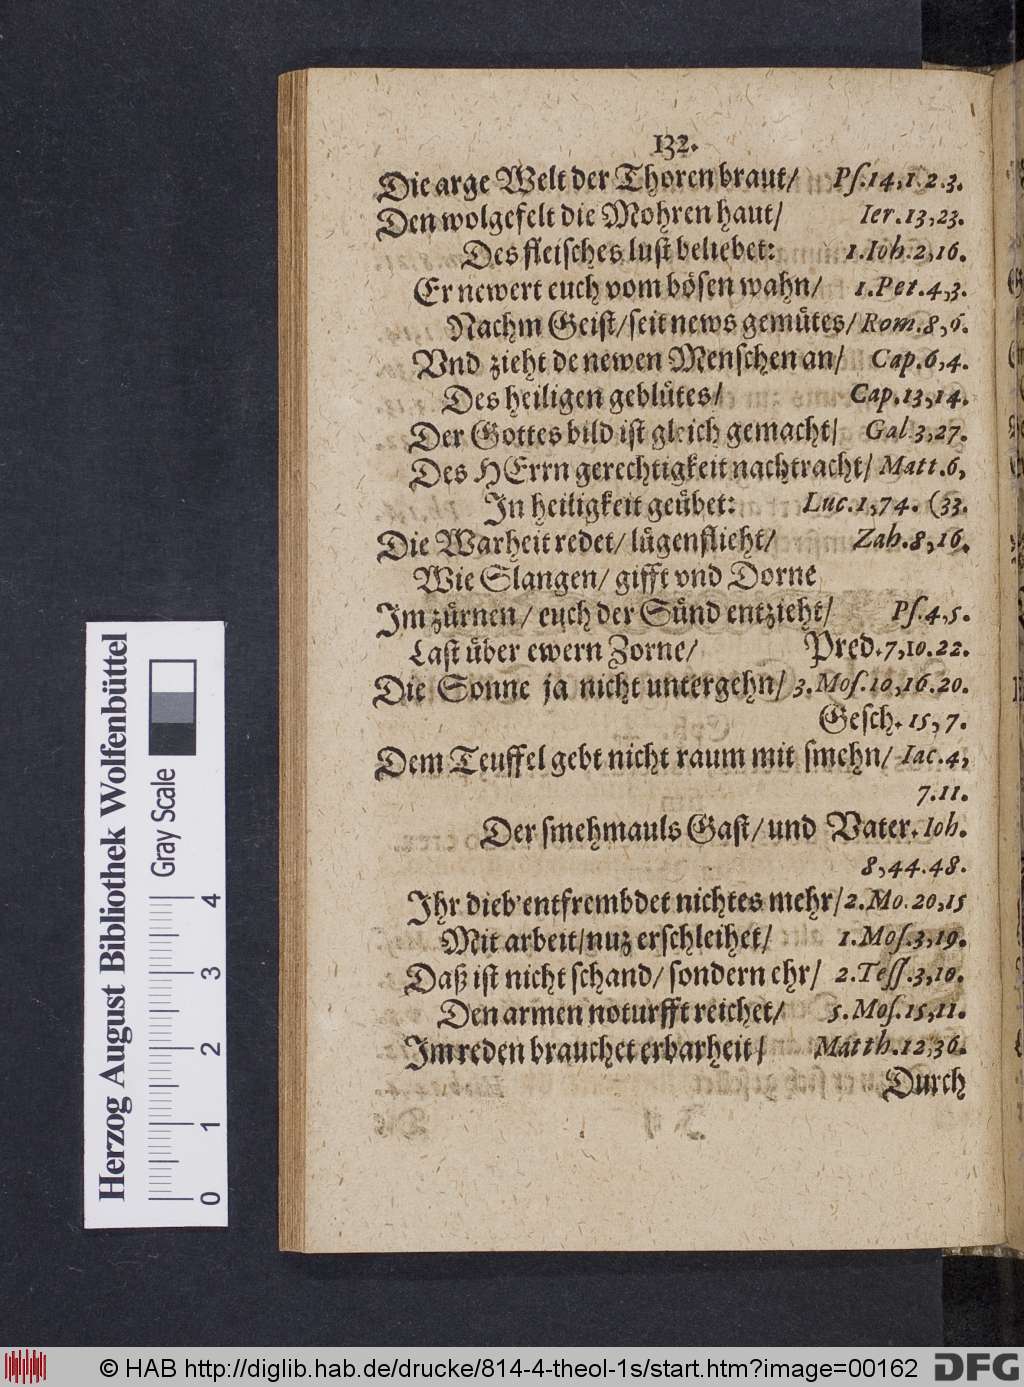 132.
Die arge Welt der Thoren braut/ Pſ.14,1.2.3.
Den wolgefelt die Mohren haut/ Ier.13,23.
Des fleiſches luſt beliebet: 1.Ioh.2,16.
Er newert euch vom böſen wahn/ 1.Pet.4,3.
Nachm Geiſt/ſeit news gemütes/ Rom.8,6.
Vnd zieht de newen Menſchen an/ Cap.6,4.
Des heiligen geblütes/ Cap.13,14.
Der Gottes bild iſt gleich gemacht/ Gal 3,27.
Des HErrn gerechtigkeit nachtracht/ Matt.6,
In heiligkeit geübet: Luc.1,74. (33.
Die Warheit redet/ lügen flieht/ Zah.8,16.
Wie Slangen/ gifft vnd Dorne
Im zürnen/ euch der Sünd entzieht/ Pſ.4,5.
Laſt über ewern Zorne/ Pred.7,10.22.
Die Sonne ja nicht untergehn/ 3.Moſ.10,16.20.
Geſch.15,7.
Dem Teuffel gebt nicht raum mit ſmehn/ Iac.4,
7.11.
Der ſmehmauls Gaſt/ und Vater. Ioh.
8,44.48.
Ihr dieb' entfrembdet nichtes mehr/ 2.Mo.20,15
Mit arbeit/nuz erſchleihet/ 1.Moſ.3,19.
Daß iſt nicht ſchand/ ſondern ehr/ 2.Teſſ.3,10.
Den armen noturfft reichet/ 5.Moſ.15,11.
Im reden brauchet erbarheit/ Matth.12,36.
Durch
Herzog August Bibliothek Wolfenbüttel
Gray Scale
0 1 2 3 4
© HAB http://diglib.hab.de/drucke/814-4-theol-1s/start.htm?image=00162
DFG